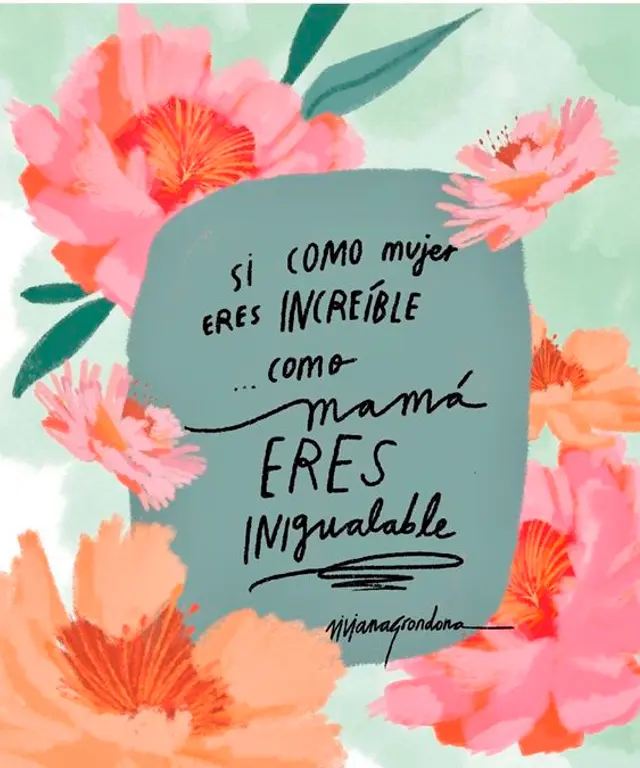 Si COMO mujer
ERES INCREÍBLE
... como
mamá
ERES
INIgualable
vivianagrondona